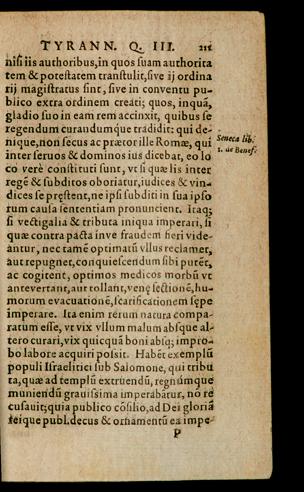 TYRANN. Q. III. 211
nisi iis authoribus, in quos suam authorita
tem & potestatem transtulit, sive ij ordina
rij magistratus sint, sive in conventu pu-
blico extra ordinem creati; quos, inquã,
gladio suo in eam rem accinxit, quibus se
regendum curandumq́ue tradidit: qui de-
nique, non secus ac prætor ille Romæ, qui
Seneca lib.
inter servos & dominos ius dicebat, eo lo
1. de Benef.
co verè constituti sunt, vt si quæ lis inter
regẽ & subditos oboriatur, iudices & vin-
dices se pręstent, ne ipsi subditi in sua ipso
rum causa sententiam pronuncient. Itaq;
si vectigalia & tributa iniqua imperari, si
quæ contra pacta inve fraudem fieri vide-
antur, nec tamẽ optimatũ vllus reclamet,
aut repugnet, conquiescendum sibi putẽt,
ac cogitent, optimos medicos morbũ vt
antevertant, aut tollant, venę sectionẽ, hu-
morum evacuationẽ, scarificationem sępe
imperare. Ita enim rerum natura compa-
ratum esse, vt vix vllum malum absque al-
tero curari, vix quicquã boni absq; impro-
bo labore acquiri possit. Habẽt exemplũ
populi Israelitici sub Salomone, qui tribu
ta, quæ ad templũ extruendũ, regnũmque
muniendũ gravissima imperabãtur, no re
cusavit; quia publico cõsilio, ad Dei gloriã
reique publ. decus & ornamentũ ea impe-
P